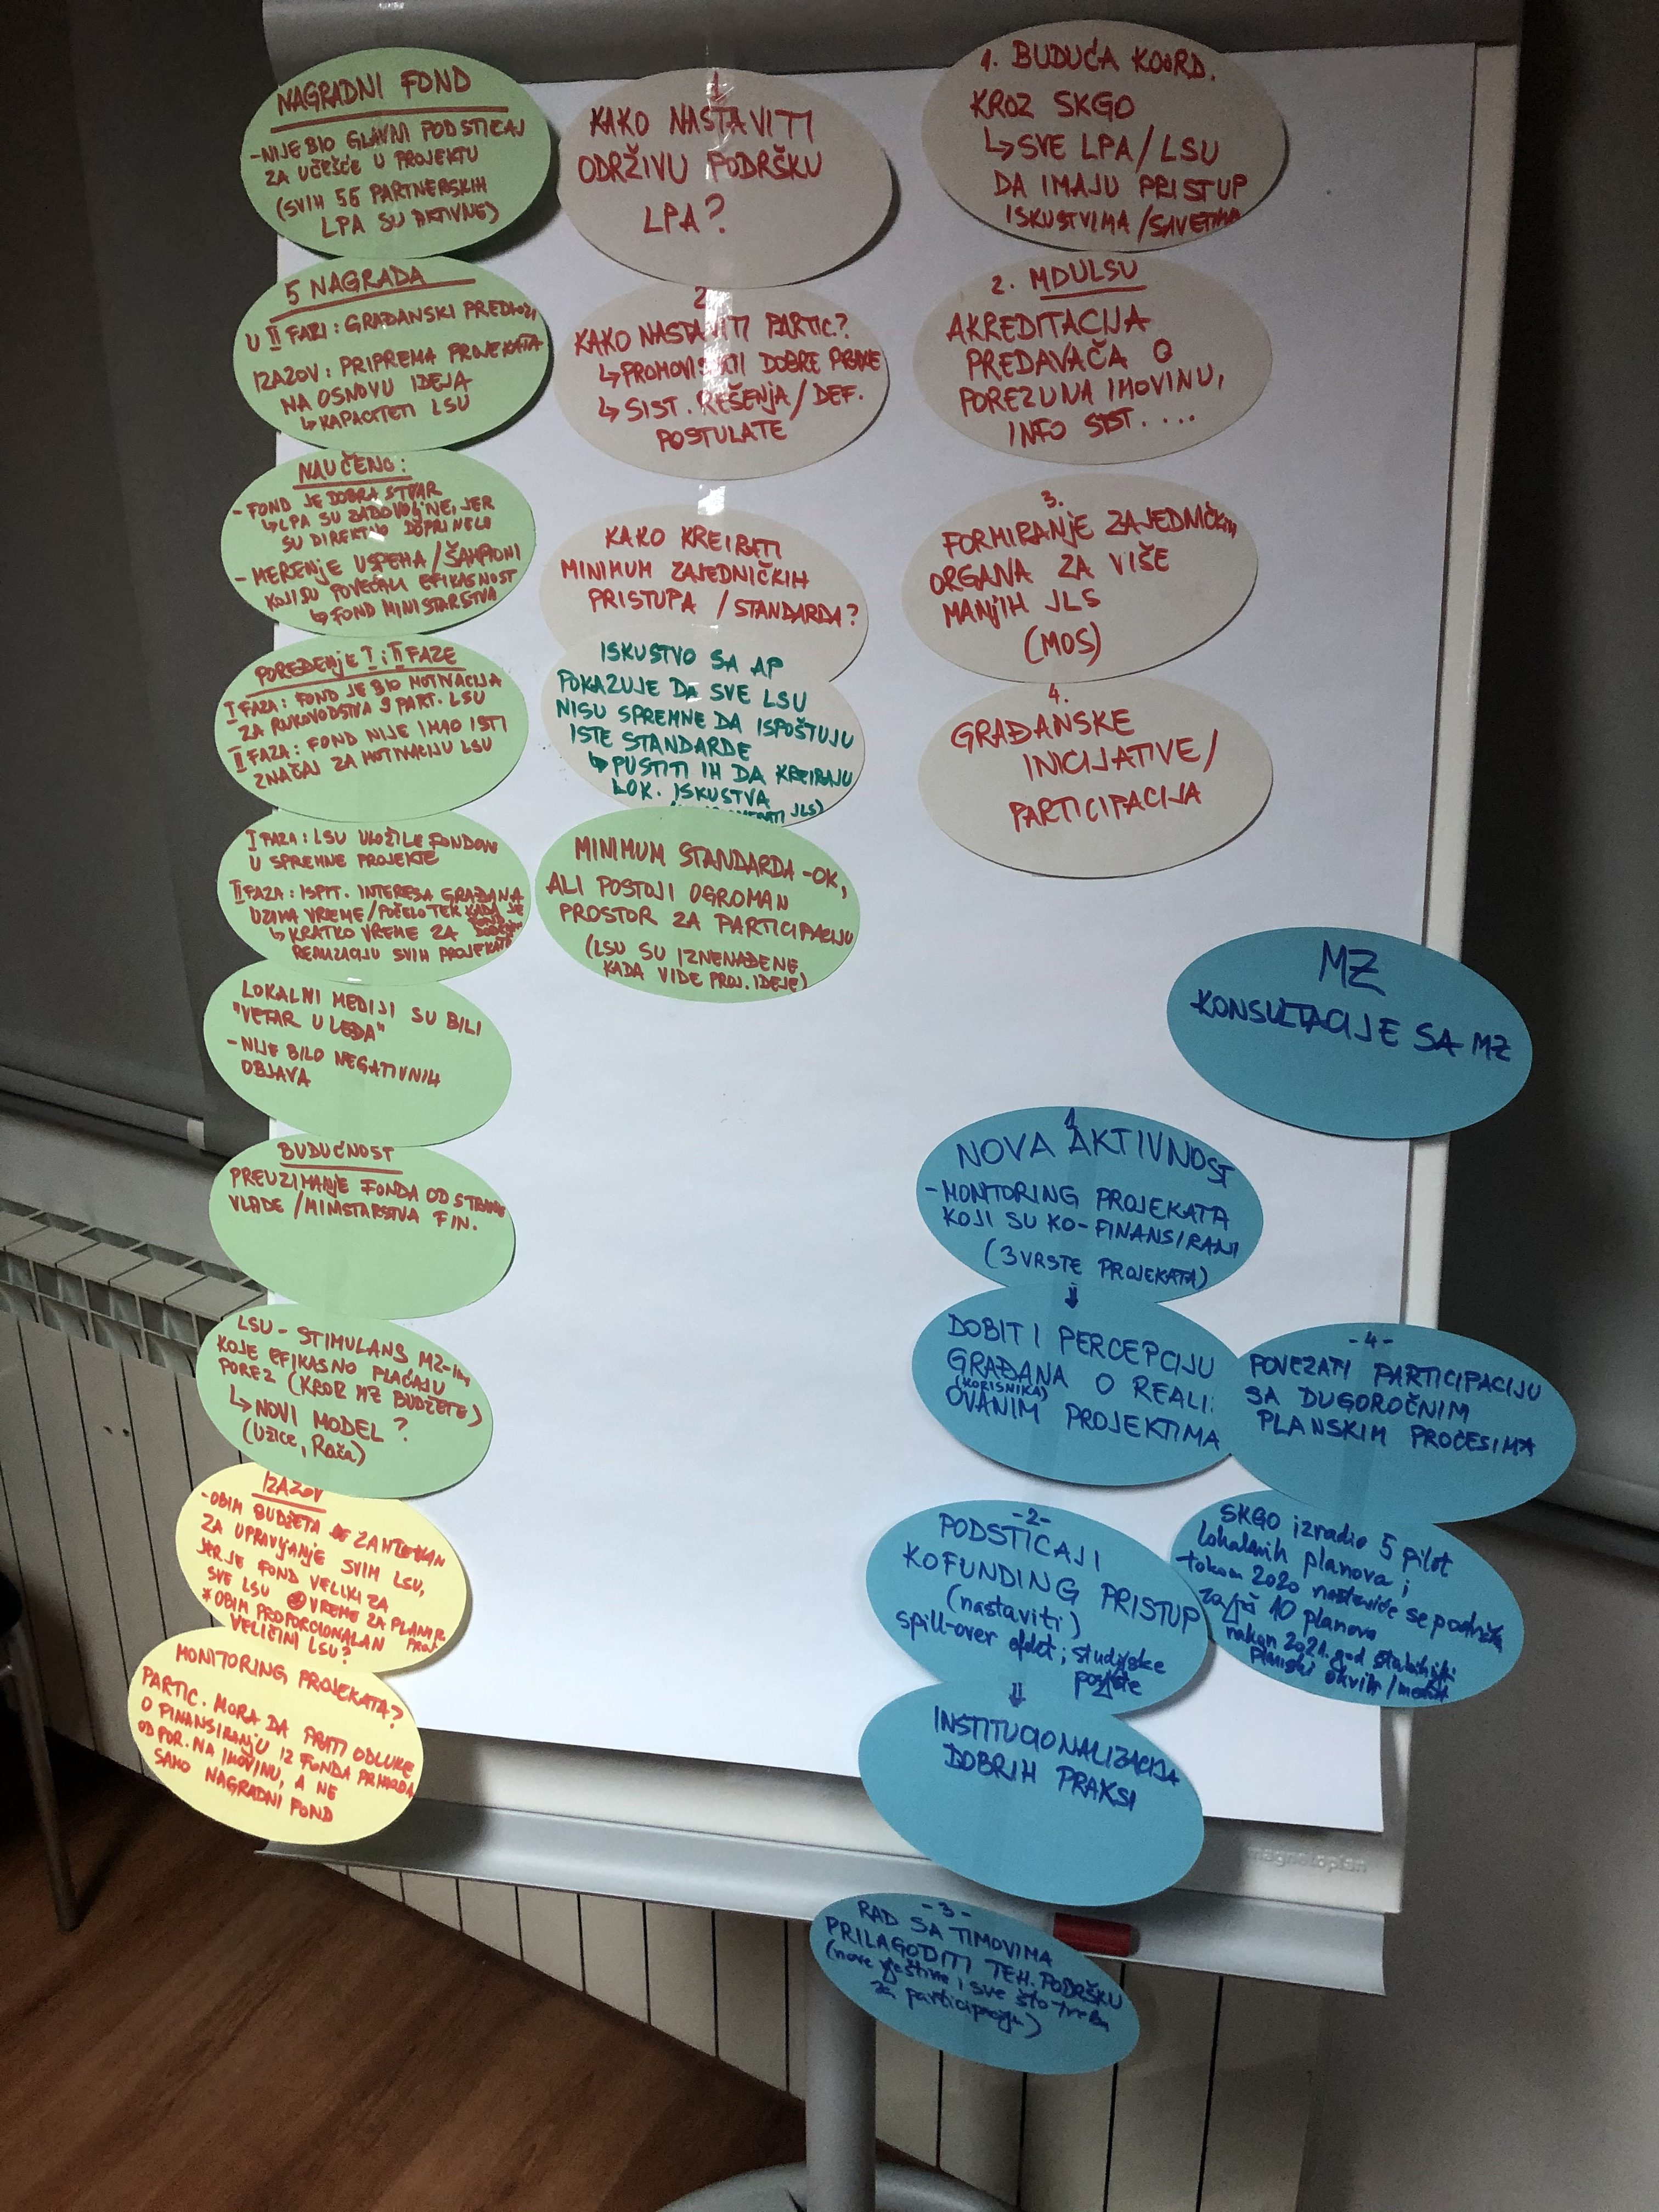 NAGRADNI FOND
- NIJE BIO GLAVNI PODSTICAJ
ZA UČEŠĆE U PROJEKTU
(SVIH 56 PARTNERSKIH
LPA SU AKTIVNE)
5 NAGRADA
U II FAZI: GRAĐANSKI PREDLOZI
IZAZOV: PRIPREMA PROJEKATA
NA OSNOVU IDEJA
↳ KAPACITETI LSU
NAUČENO:
- FOND JE DOBRA STVAR
↳ LPA SU ZADOVOLJNE, JER
SU DIREKTNO DOPRINELO
- MERENJE USPEHA / ŠAMPIONI
KOJI SU POVEĆALI EFIKASNOST
↳ FOND MINISTARSTVA
POREĐENJE I i II FAZE
I FAZA: FOND JE BIO MOTIVACIJA
ZA RUKOVODSTVA 9 PART. LSU
II FAZA: FOND NIJE IMAO ISTI
ZNAČAJ ZA MOTIVACIJU LSU
I FAZA: LSU ULOŽILE FONDOVE
U SPREMNE PROJEKTE
II FAZA: ISPIT. INTERESA GRAĐANA
UZIMA VREME / POČELO TEK KADA JE
FOND
↳ KRATKO VREME ZA
REALIZACIJU SVIH PROJEKATA
LOKALNI MEDIJI SU BILI
"VETAR U LEĐA"
- NIJE BILO NEGATIVNIH
OBJAVA
BUDUĆNOST
PREUZIMANJE FONDA OD STRANE
VLADE / MINISTARSTVA FIN.
LSU - STIMULANS MZ-
KOJE EFIKASNO PLAĆAJU
POREZ (KROZ MZ BUDŽETE)
↳ NOVI MODEL?
(Užice, Rača)
IZAZOV
- OBIM BUDŽETA JE ZAHTEVAN
ZA UPRAVLJANJE SVIM LSU,
JER JE FOND VELIKI ZA
SVE LSU VREME ZA PLANIR.
PROJ.
* OBIM PROPORCIONALAN
VELIČINI LSU?
MONITORING PROJEKATA?
PARTIC. MORA DA PRATI ODLUKE
O FINANSIRANJU IZ FONDA PRIHODA
OD POR. NA IMOVINU, A NE
SAMO NAGRADNI FOND
1
KAKO NASTAVITI
ODRŽIVU PODRŠKU
LPA?
2
KAKO NASTAVITI PARTIC.?
↳ PROMOVISATI DOBRE PRAKSE
↳ SIST. REŠENJA / DEF.
POSTULATE
KAKO KREIRATI
MINIMUM ZAJEDNIČKIH
PRISTUPA / STANDARDA?
ISKUSTVO SA AP
POKAZUJE DA SVE LSU
NISU SPREMNE DA ISPOŠTUJU
ISTE STANDARDE
↳ PUSTITI IH DA KREIRAJU
LOK. ISKUSTVA
JLS)
MINIMUM STANDARDA - OK,
ALI POSTOJI OGROMAN
PROSTOR ZA PARTICIPACIJU
(LSU SU IZNENAĐENE
KADA VIDE PROJ. IDEJE)
1. BUDUĆA KOORD.
KROZ SKGO
↳ SVE LPA / LSU
DA IMAJU PRISTUP
ISKUSTVIMA / SAVETIMA
2. MDULSU
AKREDITACIJA
PREDAVAČA O
POREZU NA IMOVINU,
INFO SIST. ....
3.
FORMIRANJE ZAJEDNIČKIH
ORGANA ZA VIŠE
MANJIH JLS
(MOS)
4.
GRAĐANSKE
INICIJATIVE /
PARTICIPACIJA
MZ
KONSULTACIJE SA MZ
1
NOVA AKTIVNOST
- MONITORING PROJEKATA
KOJI SU KO-FINANSIRANI
(3 VRSTE PROJEKATA)
↓
DOBITI PERCEPCIJU
GRAĐANA O REALI.
(KORISNIKA)
OVANIM PROJEKTIMA
- 4 -
POVEZATI PARTICIPACIJU
SA DUGOROČNIM
PLANSKIM PROCESIMA
SKGO izradio 5 pilot
lokalnih planova i
tokom 2020 nastaviće se podrška
za još 10 planova
nakon 2021. god
planski okvir
- 2 -
PODSTICAJI
KOFUNDING PRISTUP
(nastaviti)
spill-over efekt; studijske
posjete
↓
INSTITUCIONALIZACIJA
DOBRIH PRAKSI
- 3 -
RAD SA TIMOVIMA
PRILAGODITI TEH. PODRŠKU
(nove vještine i sve što treba
za participaciju)
magnetoplan